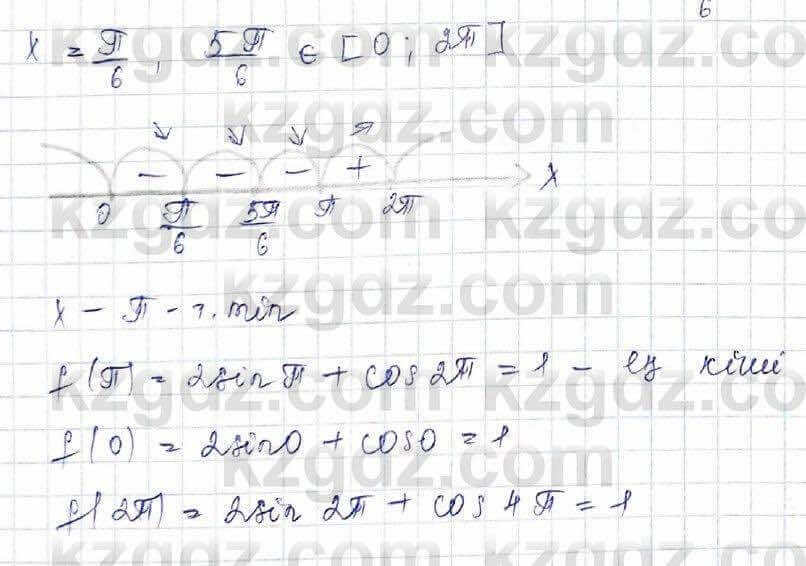 6
x = π/6, 5π/6 ∈ [0; 2π]
↘ ↘ ↘ ↗
− − − +
0 π/6 5π/6 π 2π x
x − π − т. min
f(π) = 2sin π + cos 2π = 1 − ең кіші
f(0) = 2sin0 + cos0 = 1
f(2π) = 2sin 2π + cos 4π = 1
kzgdz.com